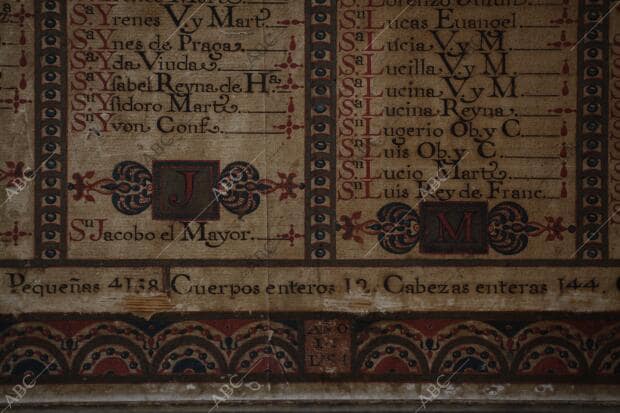 Sᵃ Yrenes V y Mart.
Sᵃ Ynes de Praga
Sᵃ Yda Viuda
Sᵃ Ysabel Reyna de Hᵃ
Sⁿ Ysidoro Mart.
Sⁿ Yvon Conf.
J
Sⁿ Jacobo el Mayor
Sⁿ Lucas Euangel.
Sᵃ Lucia V. y M.
Sᵃ Lucilla V. y M.
Sᵃ Lucina V. y M.
Sᵃ Lucina Reyna
Sⁿ Lugerio Ob. y C.
Sⁿ Luis Ob. y C.
Sⁿ Lucio Mart.
Sⁿ Luis Rey de Franc.
M
Pequeñas 4138. Cuerpos enteros 12. Cabezas enteras 144.
AÑO